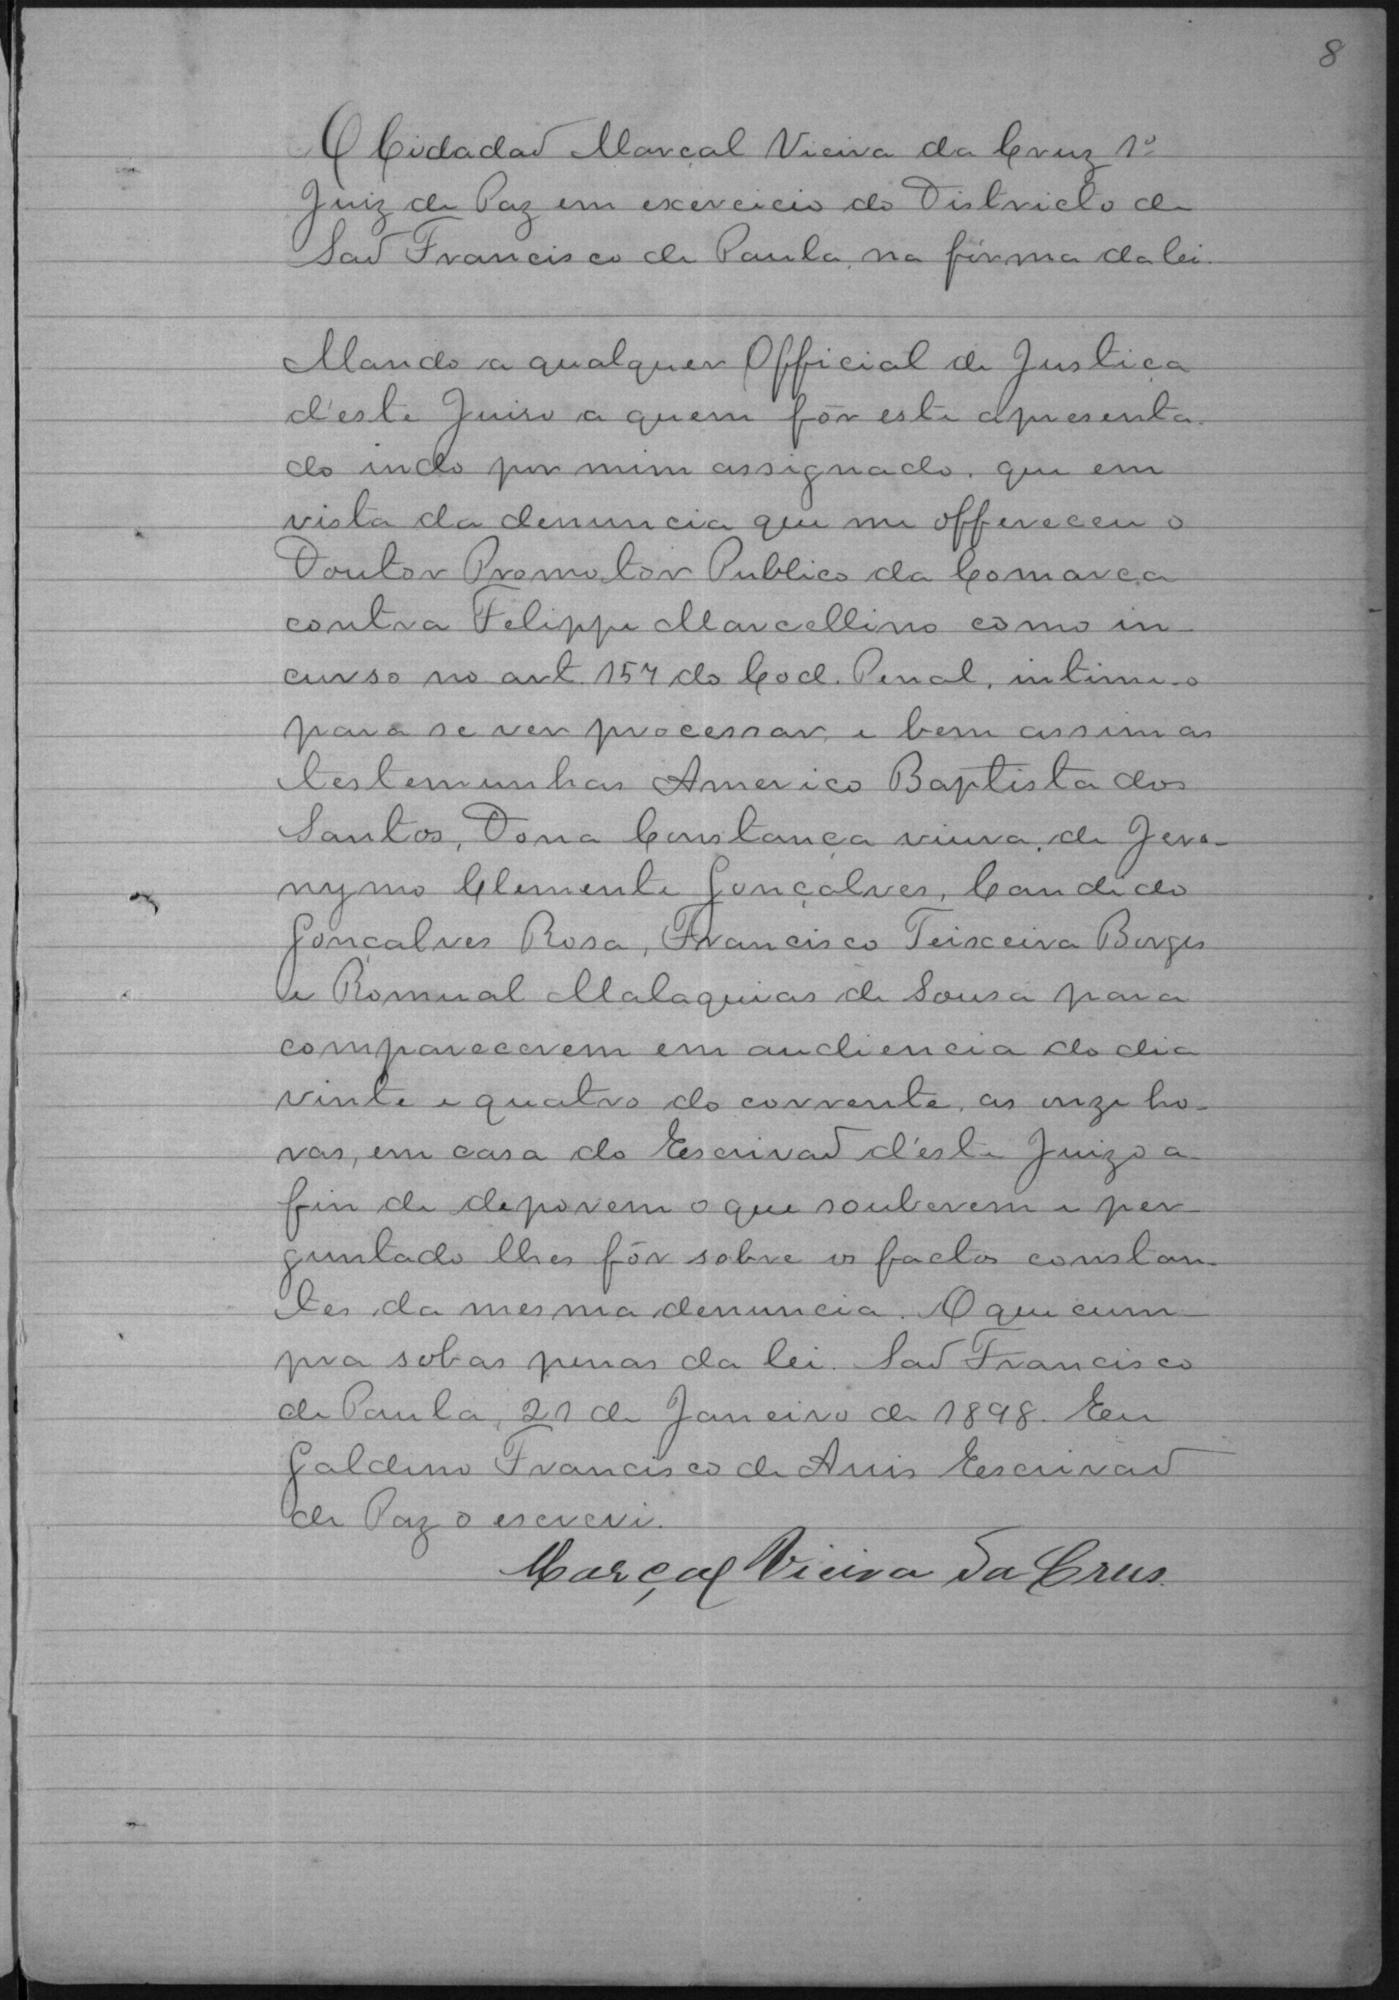 8
O Cidadaõ Marçal Vieira da Cruz 1º
Juiz de Paz em exercicio do Districto de
Saõ Francisco de Paula, na fórma da lei.
Mando a qualquer Official de Justiça
d'este Juiso a quem fôr este apresenta-
do indo por mim assignado, que em
vista da denuncia que me offereceu o
Doutor Promotor Publico da Comarca
contra Felippe Marcellino como in-
curso no art. 157 do Cod. Penal, intime-o
para se ver processar, e bem assim as
testemunhas Americo Baptista dos
Santos, Dona Constança viuva, de Jero-
nymo Clemente Gonçalves, Candido
Gonçalves Rosa, Francisco Teixeira Borges
e Romual Malaquias de Sousa para
comparecerem em audiencia do dia
vinte e quatro do corrente, as onze ho-
ras, em casa do Escrivaõ d'este Juizo a-
fin de deporem o que souberem e per-
guntado lhes fôr sobre os factos constan-
tes da mesma denuncia. O que cum-
pra sob as penas da lei. Saõ Francisco
de Paula, 21 de Janeiro de 1898. Eu
Galdino Francisco de Escrivaõ
de Paz o escrevi.
Marçal Vieira da Crus.